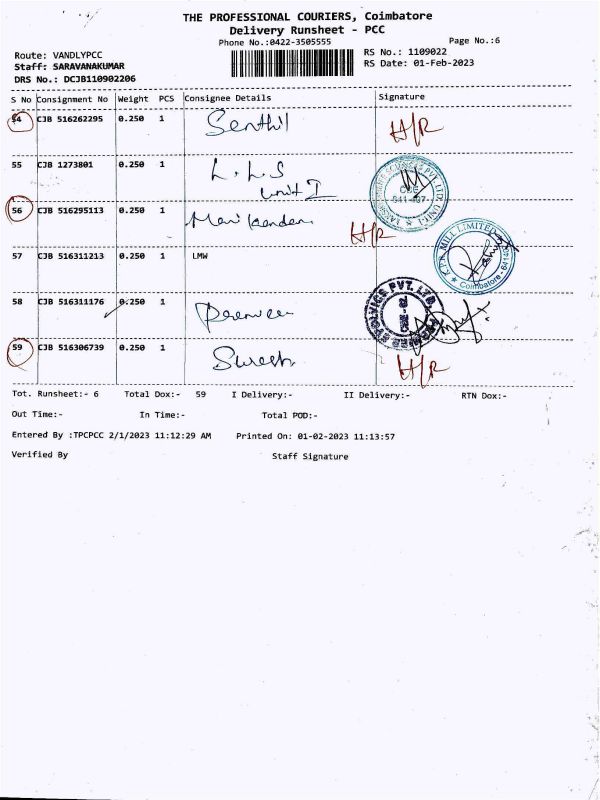 THE PROFESSIONAL COURIERS, Coimbatore
Delivery Runsheet - PCC
Phone No.:0422-3505555
Page No.:6
Route: VANDLYPCC
RS No.: 1109022
Staff: SARAVANAKUMAR
RS Date: 01-Feb-2023
DRS No.: DCJB110902206
S No Consignment No Weight PCS Consignee Details Signature
54 CJB 516262295 0.250 1 Senthil H/R
55 CJB 1273801 0.250 1 L.L.S
Unit I
56 CJB 516295113 0.250 1 Manikandan H/R
57 CJB 516311213 0.250 1 LMW
K.P.R. MILL LIMITED
Coimbatore
58 CJB 516311176 0.250 1 Praveen
PVT. LTD.
59 CJB 516306739 0.250 1 Suresh H/R
Tot. Runsheet:- 6 Total Dox:- 59 I Delivery:- II Delivery:- RTN Dox:-
Out Time:- In Time:- Total POD:-
Entered By :TPCPCC 2/1/2023 11:12:29 AM Printed On: 01-02-2023 11:13:57
Verified By Staff Signature